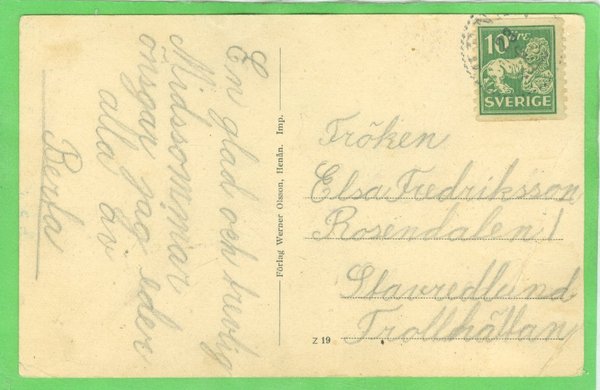 En glad och trevlig
Midssommar
önsgar jag eder
alla av
Berta
Förlag Werner Olsson, Henån. Imp.
Z 19
10 ÖRE
SVERIGE
Fröken
Elsa Fredriksson
Rosendalen 1
Stavredlund
Trollhättan